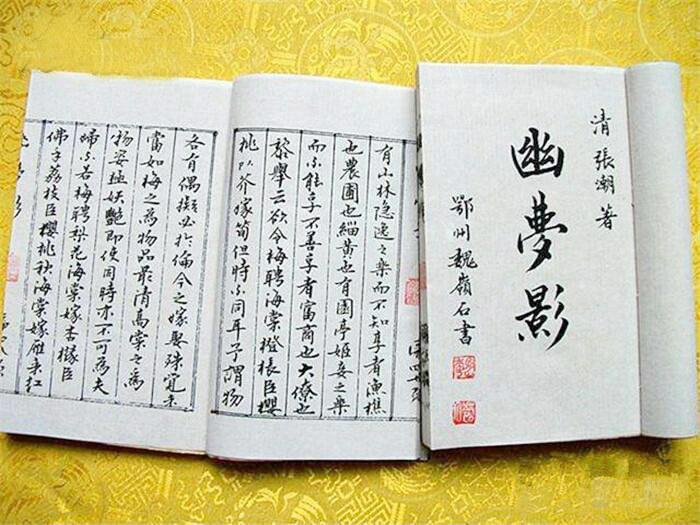 清 張潮 著
幽夢影
鄂州魏嶺石書
有山林隐逸之樂而不知享者漁樵
也農圃也緇黄也有園亭姬妾之樂
而不能享不善享者富商也大僚也
黎舉云欲令梅聘海棠橙棖臣櫻
桃以芥嫁筍但時不同耳予謂物
各有偶擬必於倫今之嫁娶殊覺未
當如梅之為物品最清高棠之為
物姿極妖艷即使同時亦不可為夫
婦不若梅聘梨花海棠嫁杏櫞臣
佛手荔枝臣櫻桃秋海棠嫁雁来紅